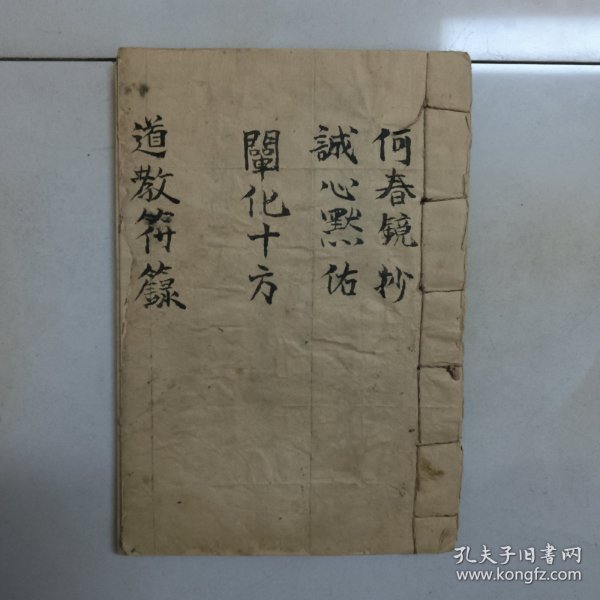 何春镜抄
誠心默佑
闡化十方
道教符籙
孔夫子旧书网
www.kongfz.com